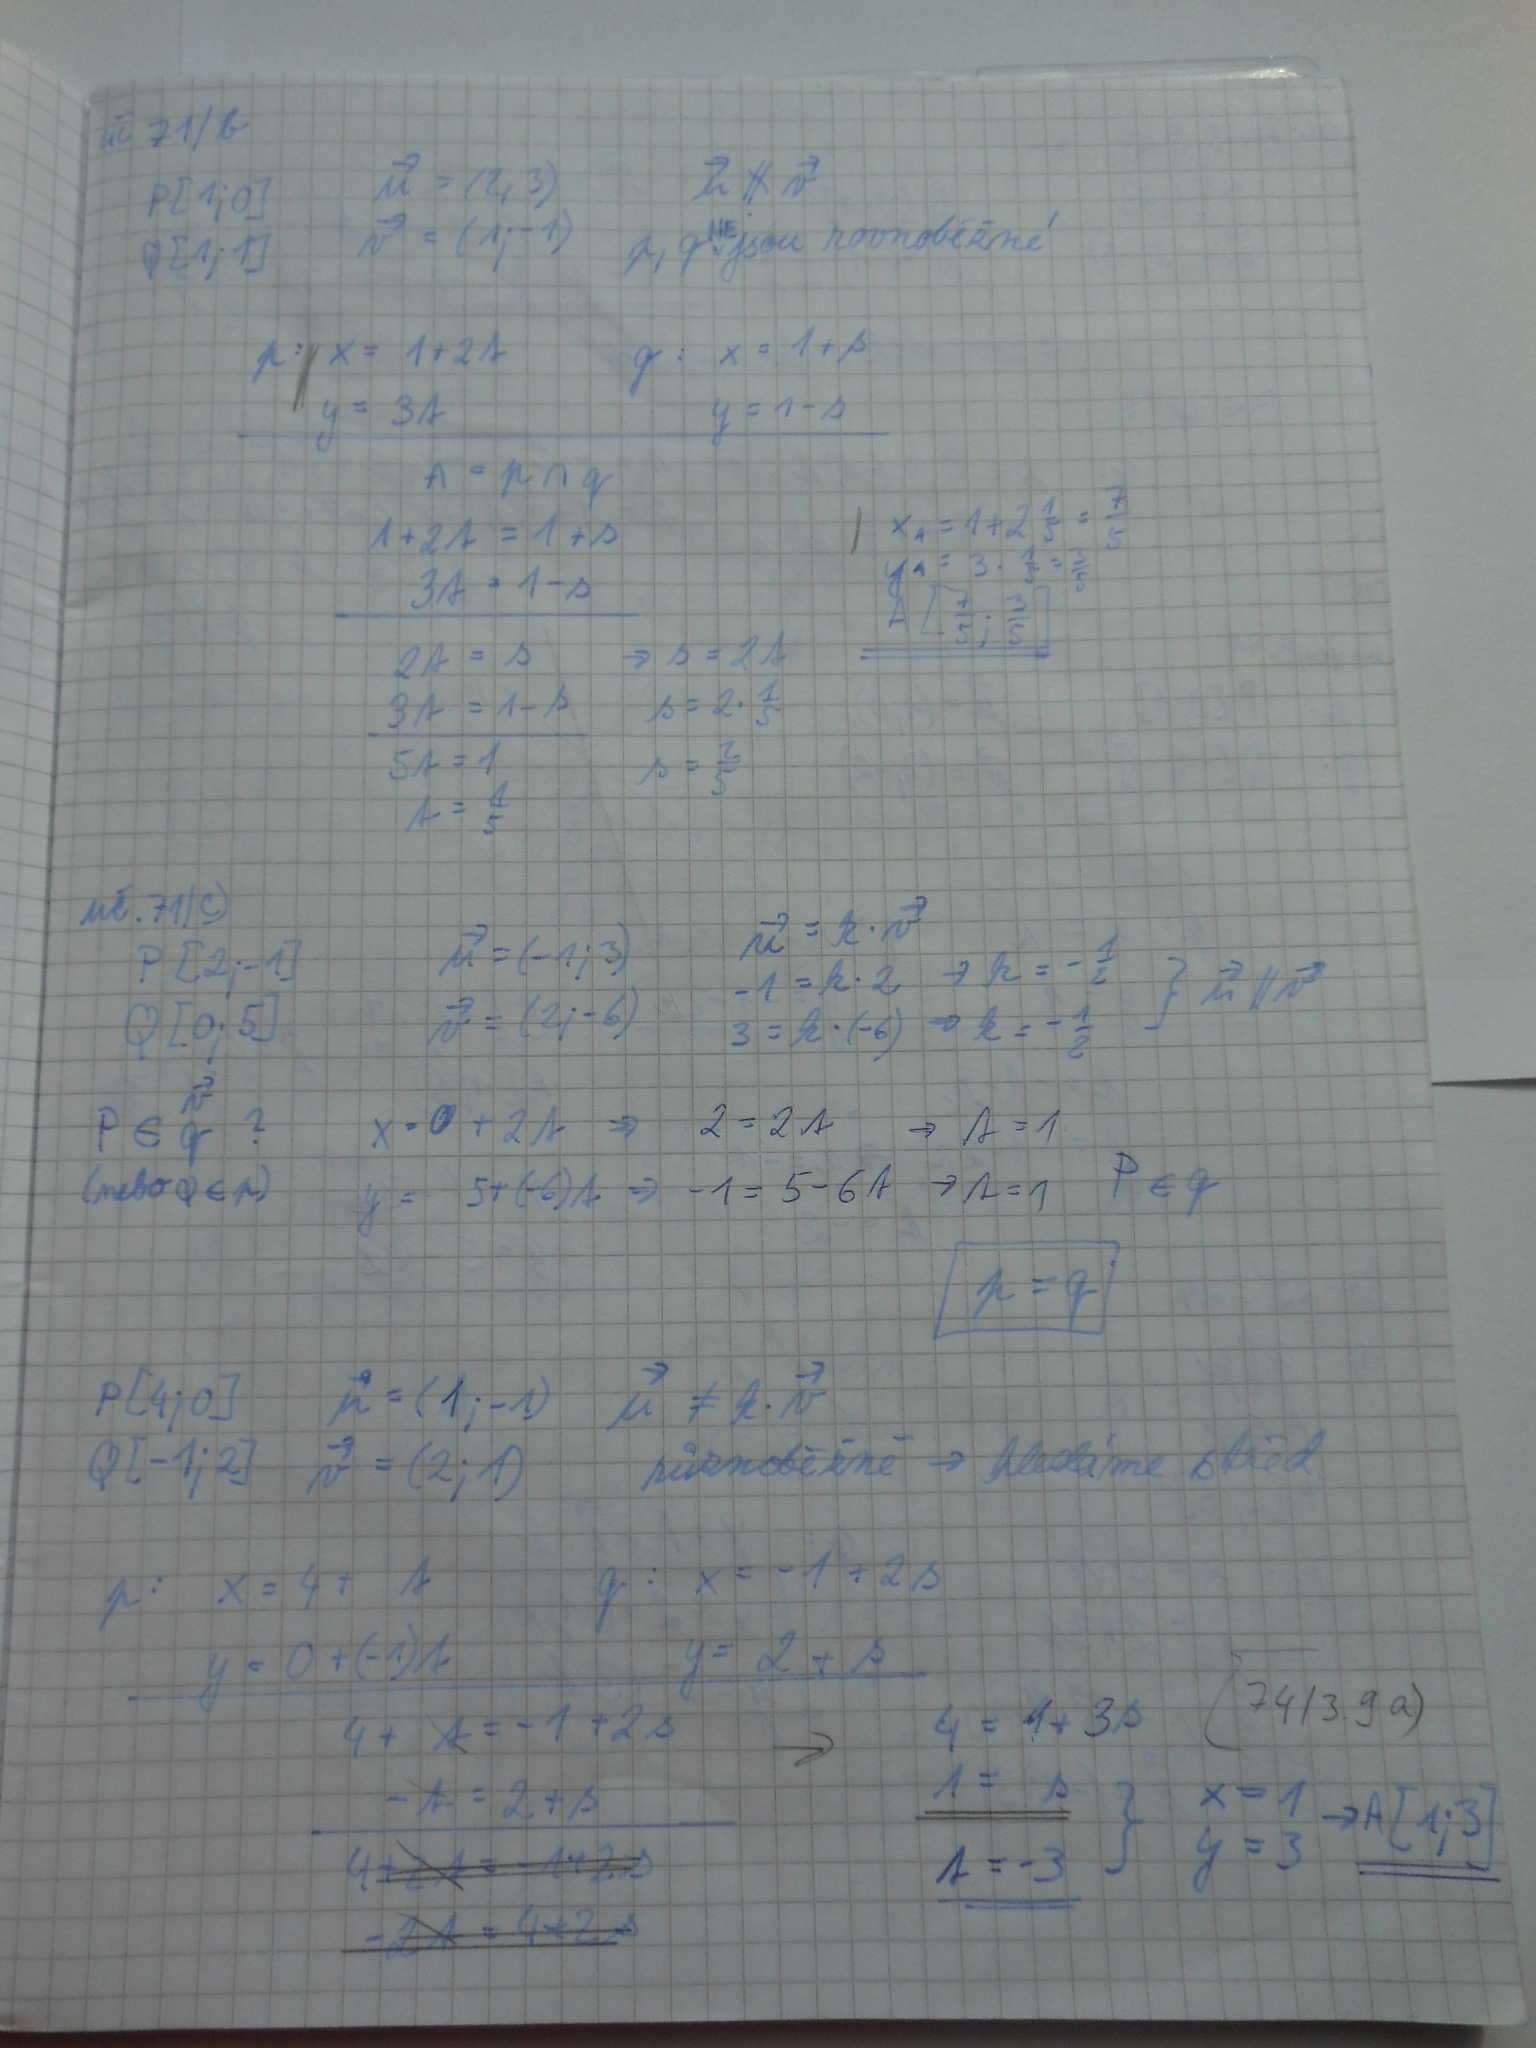 uč 71/b
P[1;0] u⃗ = (2, 3) u⃗ ∦ v⃗
Q[1;1] v⃗ = (1;-1) p, q NEjsou rovnoběžné
p: x = 1+2t q: x = 1+s
y = 3t y = 1-s
A = p ∩ q
1+2t = 1+s
3t = 1-s
2t = s → s = 2t
3t = 1-s s = 2·1/5
5t = 1 s = 2/5
t = 1/5
x_A = 1+2 1/5 = 7/5
y_A = 3·1/5 = 3/5
A[7/5; 3/5]
uč. 71/c)
P[2;-1] u⃗ = (-1;3) u⃗ = k·v⃗
-1 = k·2 → k = -1/2
Q[0;5] v⃗ = (2;-6) 3 = k·(-6) → k = -1/2 } u⃗ ∥ v⃗
v⃗
P ∈ q ? x = 0 + 2t ⇒ 2 = 2t → t = 1
(nebo Q ∈ p) y = 5+(-6)t ⇒ -1 = 5-6t → t = 1 P ∈ q
p = q
P[4;0] u⃗ = (1;-1) u⃗ ≠ k·v⃗
Q[-1;2] v⃗ = (2;1) různoběžné → hledáme střed
p: x = 4+ t q: x = -1+2s
y = 0+(-1)t y = 2+s
4+ t = -1+2s → 4 = 1+3s (74/3.9a)
-t = 2+s 1 = s
4+2t = -1+2s t = -3 } x = 1 y = 3 → A[1;3]
-2t = 4+2s